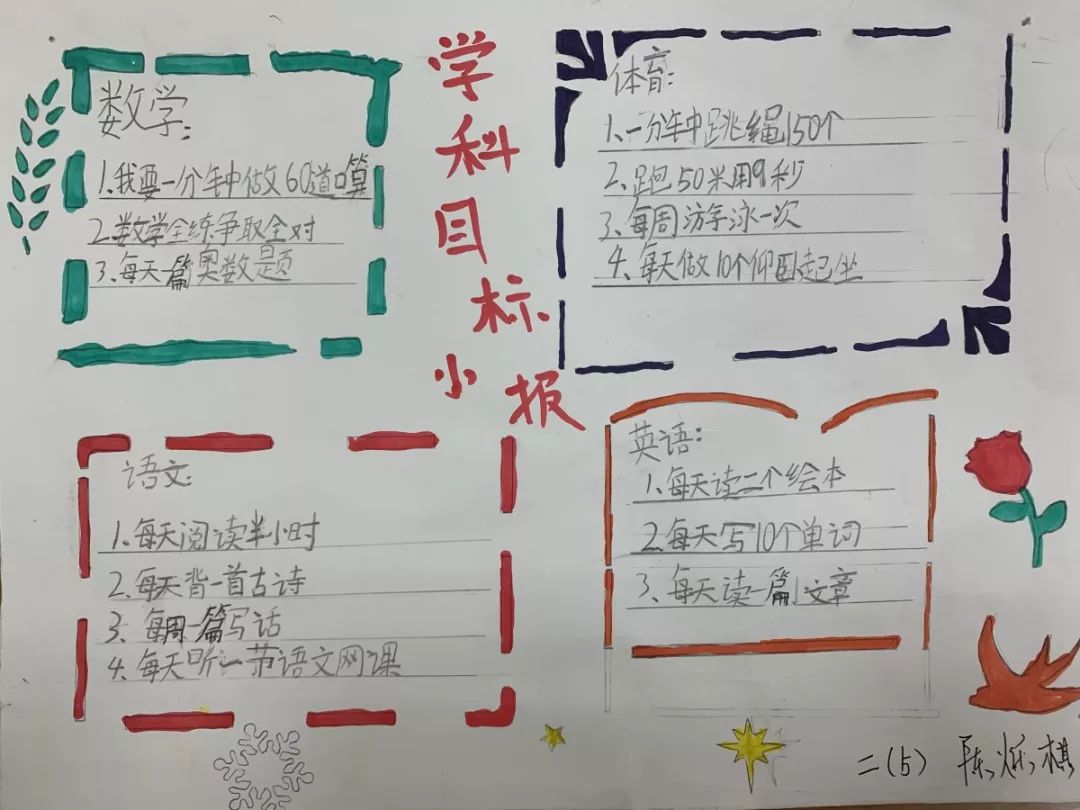 学科目标小报
数学:
1、我要一分钟中做60道口算
2、数学全练争取全对
3、每天一篇奥数题
体育:
1、一分钟中跳绳150个
2、跑50米用9秒
3、每周游泳一次
4、每天做10个仰卧起坐
语文:
1、每天阅读半小时
2、每天背一首古诗
3、每周一篇写话
4、每天听一节语文网课
英语:
1、每天读二个绘本
2、每天写10个单词
3、每天读一篇文章
二(5) 陈烁棋